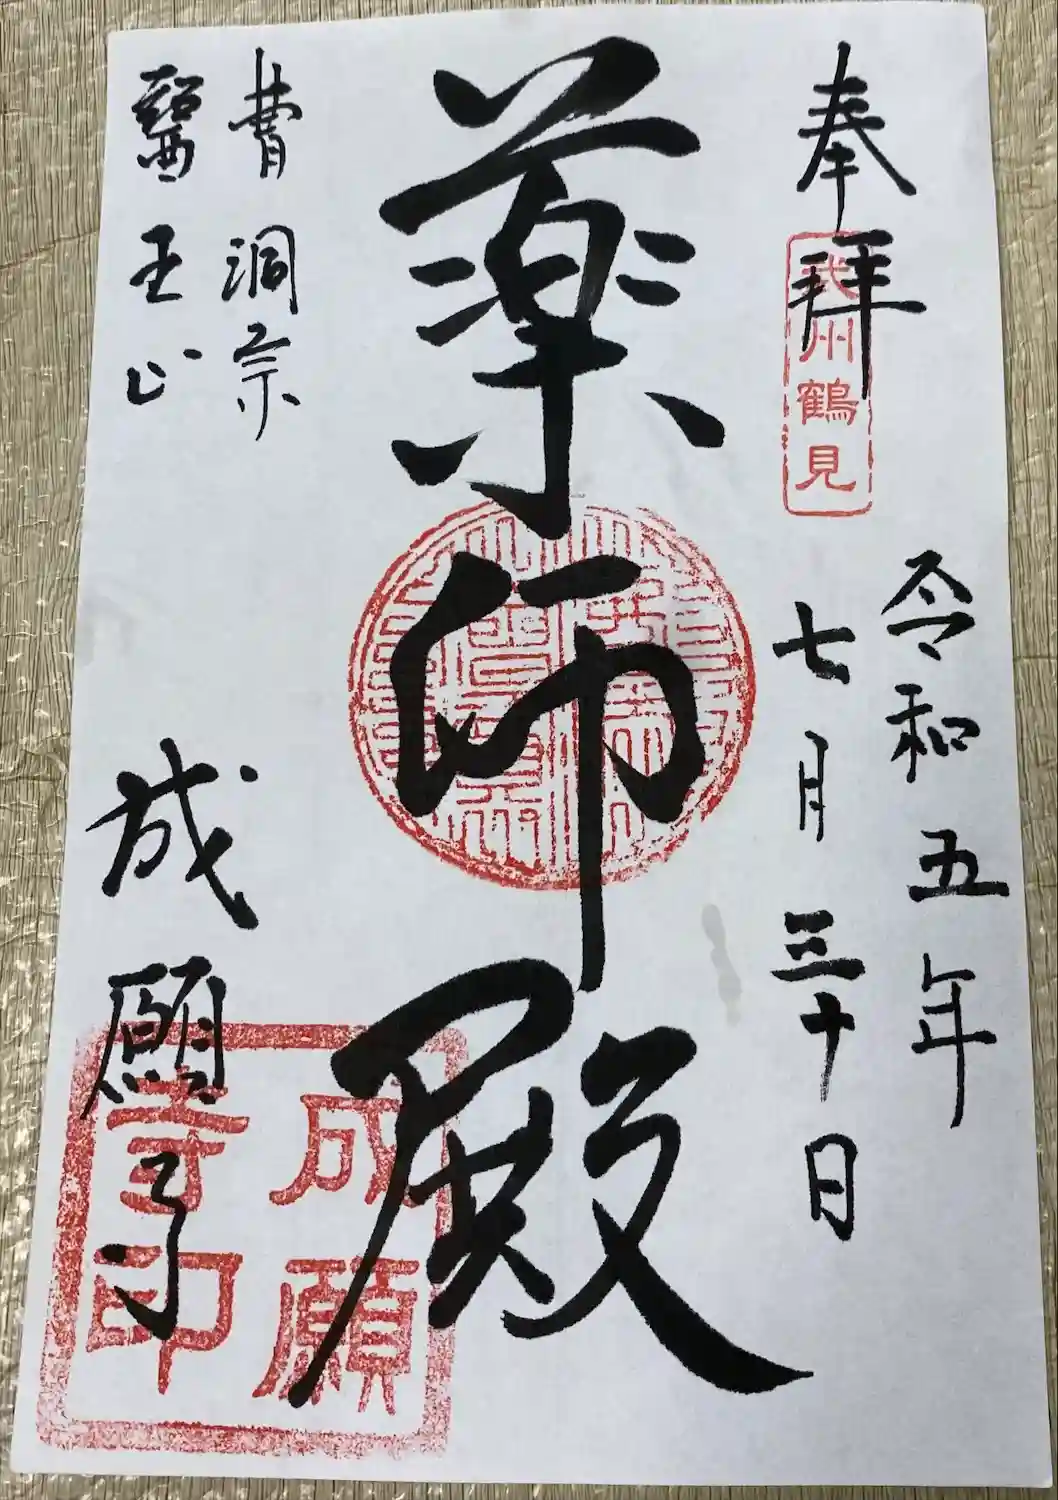 奉拝
武州鶴見
令和五年
七月三十日
薬師殿
曹洞宗
醫王山
成願寺
成願寺印